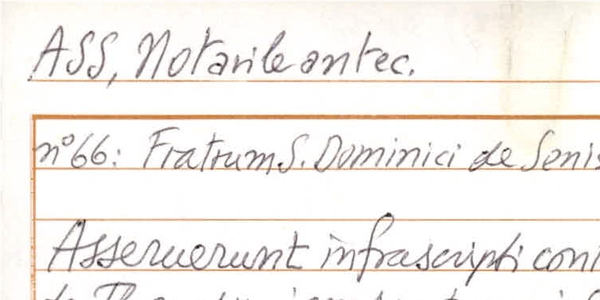 ASS, Notarile antec.
n° 66: Fratrum S. Dominici de Senis
Asseruerunt infrascripti con